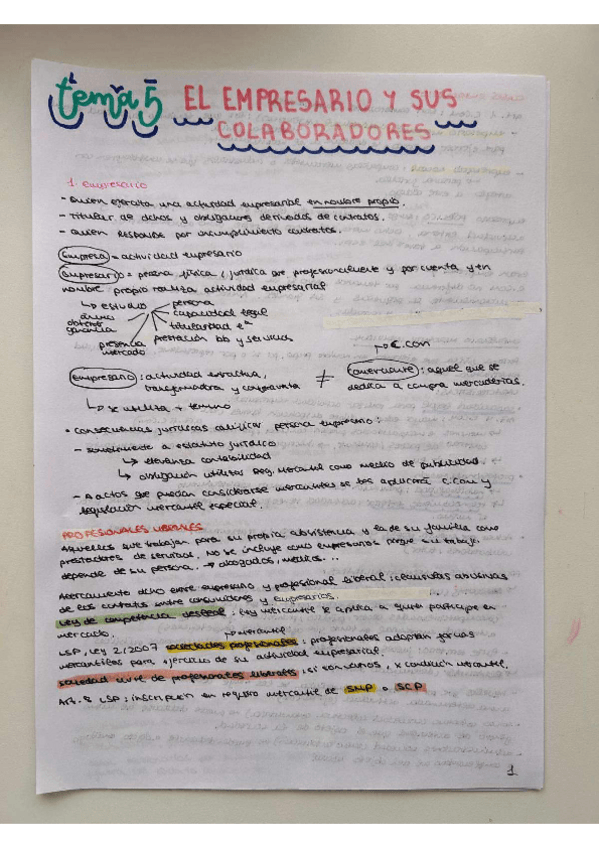 tema 5 EL EMPRESARIO Y SUS
COLABORADORES
1. Empresario
- Quien ejercita una actividad empresarial en nombre propio.
- Titular de dchos y obligaciones derivados de contratos.
- Quien responde por incumplimiento contratos.
Empresa = actividad empresario
Empresario = persona física / jurídica que profesionalmente y por cuenta y en
nombre propio realiza actividad empresarial
↳ estudio
persona
ánimo
obtener
ganancia
capacidad legal
titularidad eª
presencia
mercado
prestación bb y servicios
C.com
Empresario: actividad extractiva,
transformadora y
≠
Comerciante: aquel que se
dedica a compra mercaderías.
↳ se utiliza + término
• consecuencias jurídicas calificar persona empresario:
- sometimiento a estatuto jurídico
↳ contabilidad
↳ obligación utilizar Reg. Mercantil como medio de publicidad
- A actos que puedan considerarse mercantiles se les aplicará C.com y
legislación mercantil especial.
PROFESIONALES LIBERALES
Aquellos que trabajan para su propia subsistencia y la de su familia como
prestadores de servicios. No se incluye como empresarios porque su trabajo
depende de su persona. → abogados, médicos...
Acercamiento dcho entre empresario y profesional liberal: cláusulas abusivas
de los contratos entre consumidores y empresarios.
Ley de competencia desleal: ley mercantil se aplica a quien participe en
mercado.
mercantil
LSP, Ley 2/2007 sociedades profesionales: profesionales adoptan formas
mercantiles para ejercicio de su actividad empresarial.
sociedad civil de profesionales liberales: si son varios, x condición mercantil.
Art. 8 LSP: inscripción en registro mercantil de SMP o SCP
1